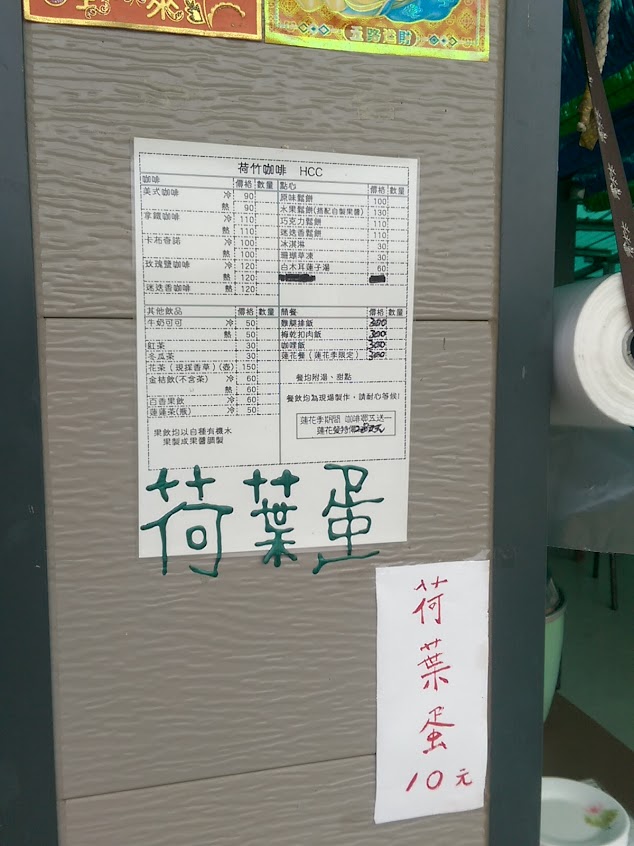 五路進財
荷竹咖啡 HCC
咖啡 價格 數量
美式咖啡 冷 90
熱 90
拿鐵咖啡 冷 110
熱 110
卡布奇諾 冷 100
熱 100
玫瑰鹽咖啡 冷 120
熱 120
迷迭香咖啡 熱 120
點心 價格 數量
原味鬆餅 100
水果鬆餅(搭配自製果醬) 130
巧克力鬆餅 110
迷迭香鬆餅 110
冰淇淋 30
珊瑚草凍 30
白木耳蓮子湯 60
其他飲品 價格 數量
牛奶可可 冷 50
熱 50
紅茶 30
冬瓜茶 30
花茶(現採香草)(壺) 150
金桔飲(不含茶) 冷 60
熱 60
百香果飲 冷 60
蓮蓬茶(瓶) 冷 50
果飲均以自種有機水
果製成果醬調製
簡餐 價格 數量
雞腿排飯 300
梅乾扣肉飯 300
咖哩飯 300
蓮花餐(蓮花季限定) 300
餐均附湯、甜點
餐飲均為現場製作,請耐心等候!
蓮花季期間 咖啡買五送一
蓮花餐特價
荷葉蛋
荷葉蛋
10元